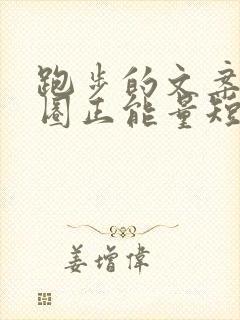 跑步的文案
圈正能量短
姜增偉